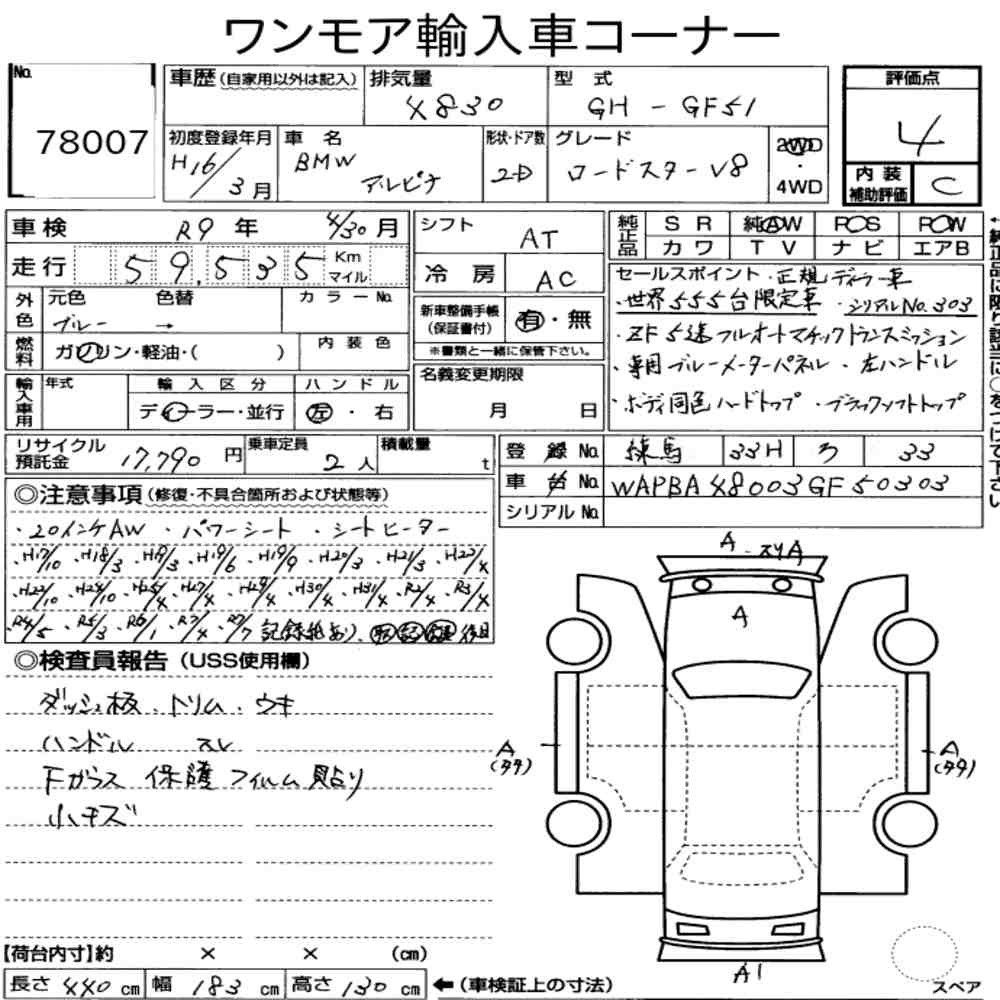 ワンモア輸入車コーナー
No. 78007
車歴(自家用以外は記入)
排気量 4830
型式 GH-GF51
評価点 4
内装補助評価 C
初度登録年月 H16/3月
車名 BMW アルピナ
形状・ドア数 2D
グレード ロードスターV8
2WD・4WD
車検 R9年 4/30月
走行 59,535 Km マイル
シフト AT
冷房 AC
純正品 SR 純AW PS PW
カワ TV ナビ エアB
外色 元色 ブルー 色替 →
カラーNo.
燃料 ガソリン・軽油・( )
内装色
新車整備手帳(保証書付) 有・無
※書類と一緒に保管下さい。
輸入車用 年式
輸入区分 ディーラー・並行
ハンドル 左・右
名義変更期限 月 日
セールスポイント・正規ディーラー車
・世界555台限定車 ・シリアルNo.303
・ZF5速フルオートマチックトランスミッション
・専用ブルーメーターパネル ・左ハンドル
・ボディ同色ハードトップ ・ブラックソフトトップ
リサイクル預託金 17,790円
乗車定員 2人
積載量 t
登録No. 練馬 33H ろ 33
車台No. WAPBA48003GF50303
シリアルNo.
◎注意事項(修復・不具合箇所および状態等)
・20インチAW ・パワーシート ・シートヒーター
・H17/10 ・H18/3 ・H19/3 ・H19/6 ・H19/9 ・H20/3 ・H21/3 ・H22/4
・H22/10 ・H24/10 ・H25/4 ・H27/4 ・H29/4 ・H30/4 ・H31/4 ・R2/4 ・R3/4
・R4/5 ・R5/3 ・R6/1 ・R7/4 ・R7/7 記録簿あり、取 記 後日
◎検査員報告(USS使用欄)
ダッシュ板、トリム、ウキ
ハンドル スレ
Fガラス 保護フィルム貼り
小キズ
A ・スリA
A
A (タタ)
A (タタ)
A1
スペア
【荷台内寸】約 × × (cm)
長さ 440cm 幅 183cm 高さ 130cm
←(車検証上の寸法)